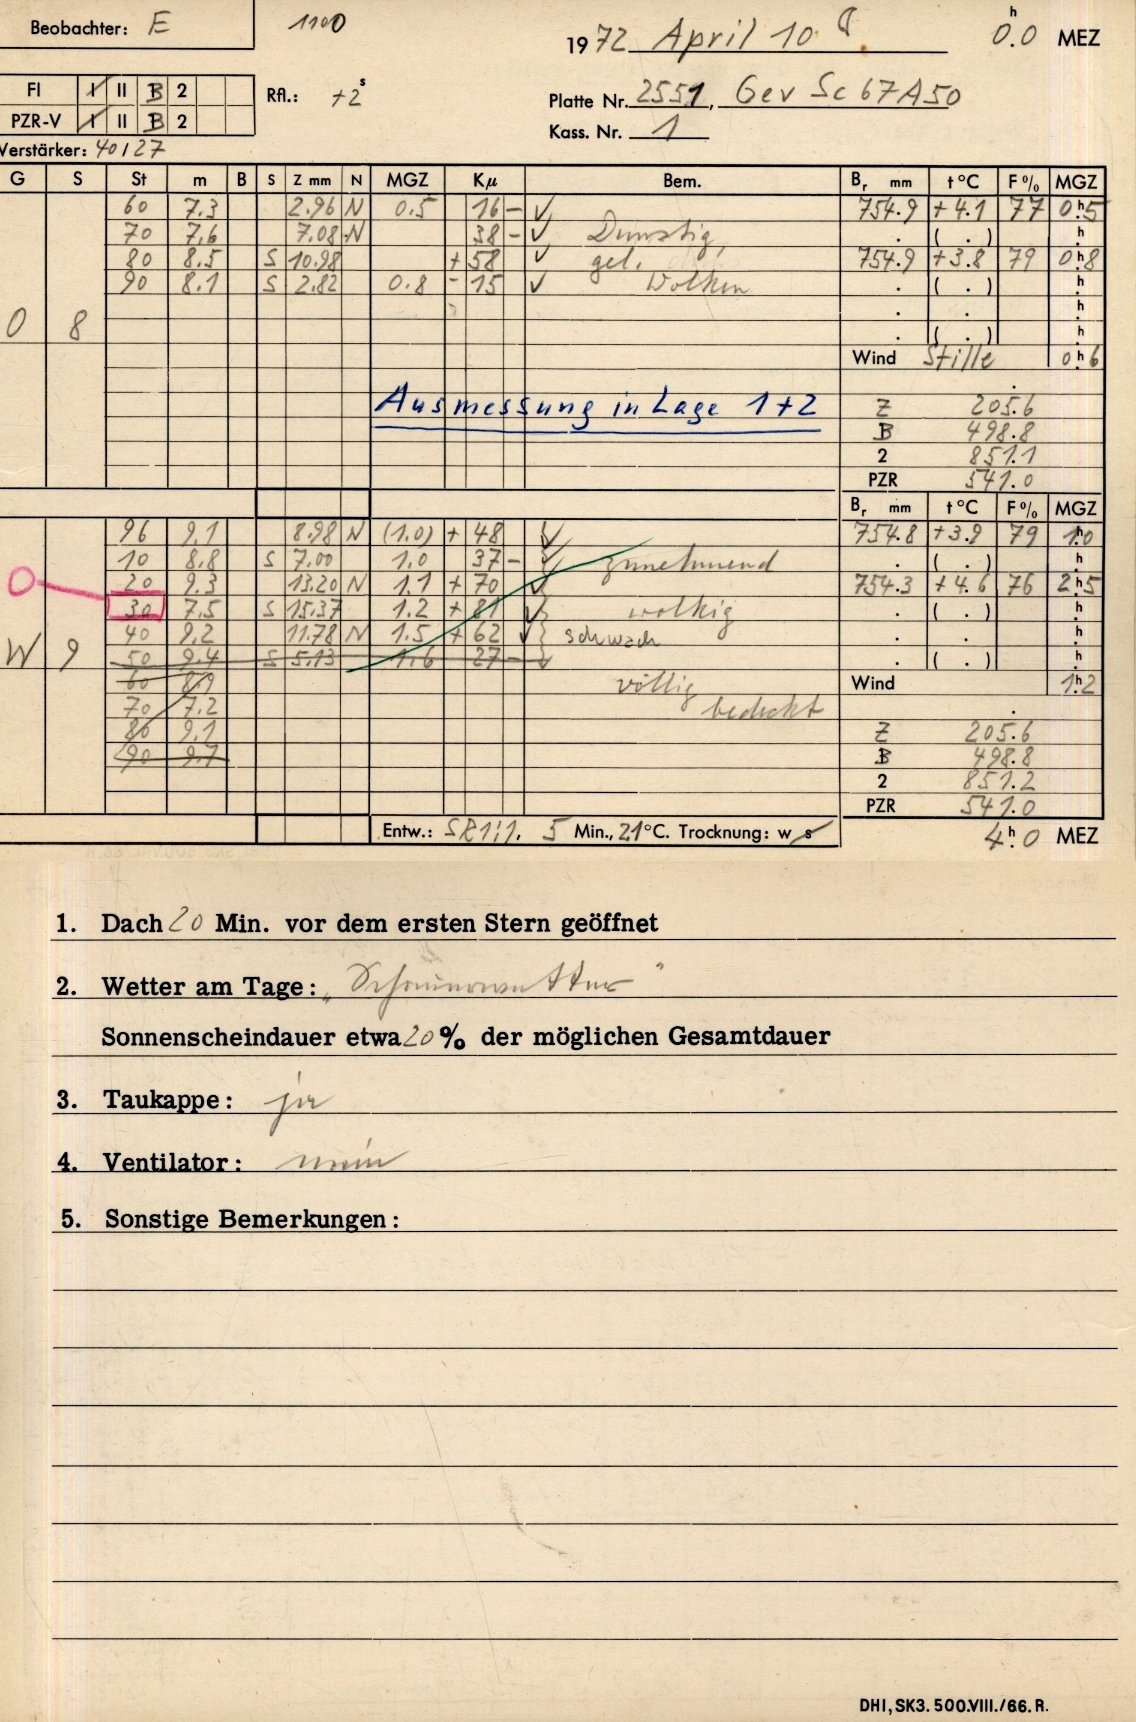 Beobachter: E 1100 1972 April 10. 0h.0 MEZ
FI I II B 2 Rfl.: +2s Platte Nr. 2551, Gev Sc 67A50
PZR-V I II B 2 Kass. Nr. 1
Verstärker: 40/27
G S St m B S Z mm N MGZ Kµ Bem. Br mm t°C F% MGZ
60 7.3 2.96 N 0.5 16 - ✓ 754.9 +4.1 77 0h.5
70 7.6 7.08 N 38 - ✓ Dunstig, . ( . ) h.
80 8.5 S 10.98 +58 ✓ gel. 754.9 +3.8 79 0h.8
90 8.1 S 2.82 0.8 - 15 ✓ Wolken . ( . ) h.
. . h.
O 8 . ( . ) h.
Wind Stille 0h.6
Ausmessung in Lage 1+2
Z 205.6
B 498.8
2 851.1
PZR 541.0
Br mm t°C F% MGZ
96 9.1 8.98 N (1.0) + 48 ✓ 754.8 +3.9 79 1h.0
10 8.8 S 7.00 1.0 37 - ✓ zunehmend . ( . ) h.
O 20 9.3 13.20 N 1.1 + 70 ✓ 754.3 +4.6 76 2h.5
30 7.5 S 15.37 1.2 + 81 ✓ wolkig . ( . ) h.
40 9.2 11.78 N 1.5 + 62 ✓ schwach . . h.
W 9 50 9.4 S 5.13 1.6 27 - ✓ . ( . ) h.
60 8.9 völlig Wind 1h.2
70 7.2 bedeckt
80 9.1 Z 205.6
90 9.7 B 498.8
2 851.2
PZR 541.0
Entw.: SR1:1. 5 Min., 21°C. Trocknung: w s 4h.0 MEZ
1. Dach 20 Min. vor dem ersten Stern geöffnet
2. Wetter am Tage: „Schauerwetter"
Sonnenscheindauer etwa 20% der möglichen Gesamtdauer
3. Taukappe: ja
4. Ventilator: nein
5. Sonstige Bemerkungen:
DHI, SK3. 500.VIII./66. R.